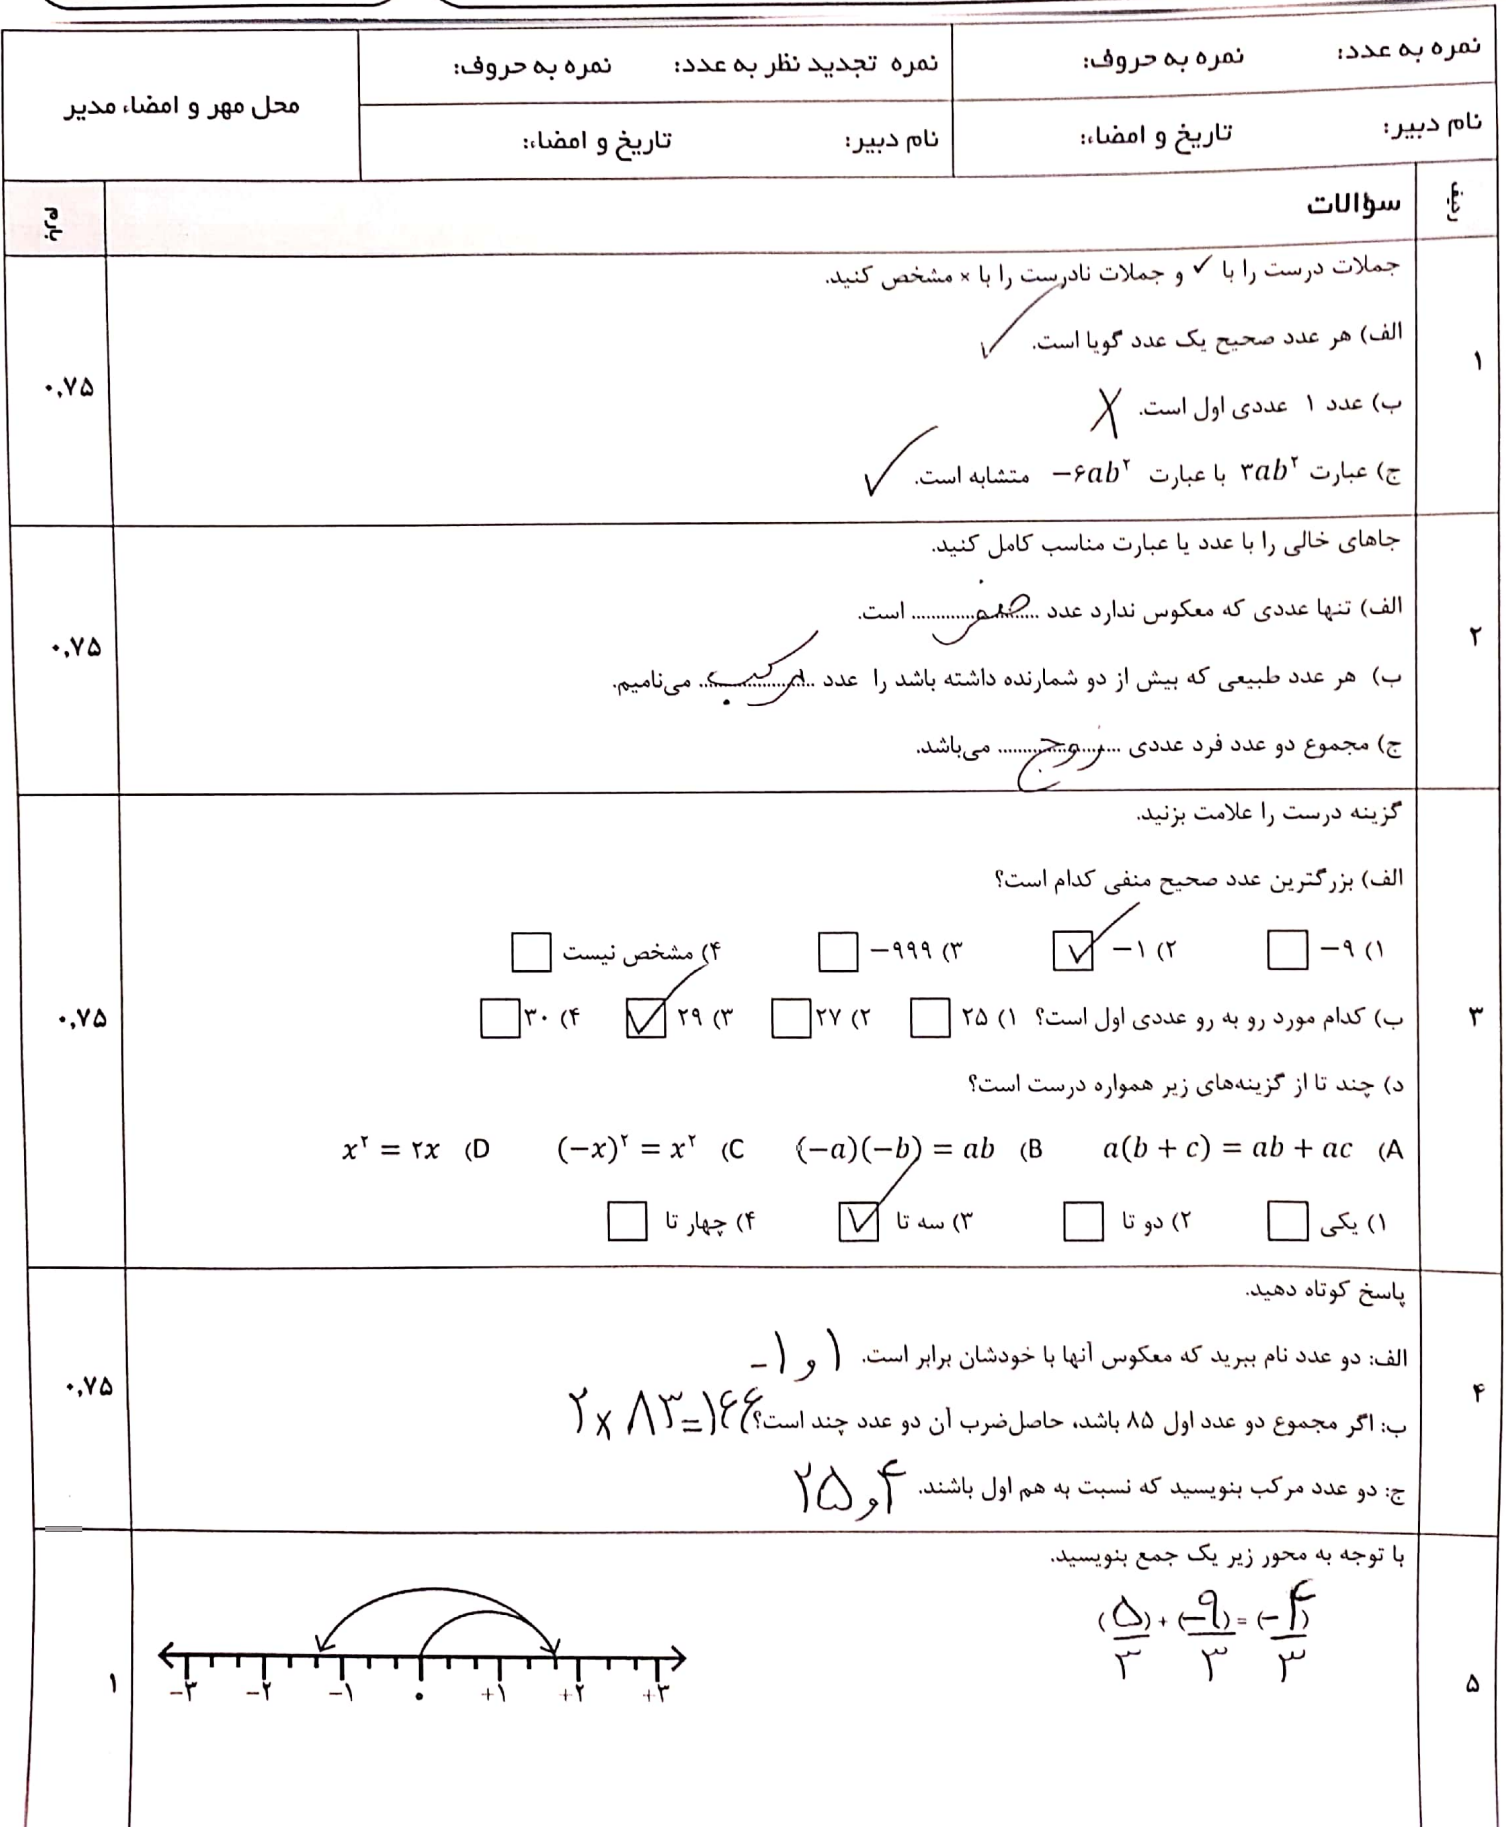 نمره به عدد: نمره به حروف: نمره تجدید نظر به عدد: نمره به حروف: محل مهر و امضاء مدیر
نام دبیر: تاریخ و امضاء: نام دبیر: تاریخ و امضاء:
ردیف سؤالات بارم
جملات درست را با ✓ و جملات نادرست را با × مشخص کنید.
الف) هر عدد صحیح یک عدد گویا است. ✓
ب) عدد ۱ عددی اول است. X
ج) عبارت ۳ab۲ با عبارت −۶ab۲ متشابه است. ✓
۱
۰٫۷۵
جاهای خالی را با عدد یا عبارت مناسب کامل کنید.
الف) تنها عددی که معکوس ندارد عدد صفر است.
ب) هر عدد طبیعی که بیش از دو شمارنده داشته باشد را عدد مرکب می‌نامیم.
ج) مجموع دو عدد فرد عددی زوج می‌باشد.
۲
۰٫۷۵
گزینه درست را علامت بزنید.
الف) بزرگترین عدد صحیح منفی کدام است؟
۱) ۹− ۲) ۱− ✓ ۳) ۹۹۹− ۴) مشخص نیست
ب) کدام مورد رو به رو عددی اول است؟ ۱) ۲۵ ۲) ۲۷ ۳) ۲۹ ✓ ۴) ۳۰
د) چند تا از گزینه‌های زیر همواره درست است؟
A) a(b + c) = ab + ac B) (−a)(−b) = ab C) (−x)۲ = x۲ D) x۲ = ۲x
۱) یکی ۲) دو تا ۳) سه تا ✓ ۴) چهار تا
۳
۰٫۷۵
پاسخ کوتاه دهید.
الف: دو عدد نام ببرید که معکوس آنها با خودشان برابر است. ۱ و ۱−
ب: اگر مجموع دو عدد اول ۸۵ باشد، حاصل‌ضرب آن دو عدد چند است؟ ۲ × ۸۳ = ۱۶۶
ج: دو عدد مرکب بنویسید که نسبت به هم اول باشند. ۴ و ۲۵
۴
۰٫۷۵
با توجه به محور زیر یک جمع بنویسید.
(۵/۳) + (−۹/۳) = (−۴/۳)
−۳ −۲ −۱ ۰ +۱ +۲ +۳
۵
۱